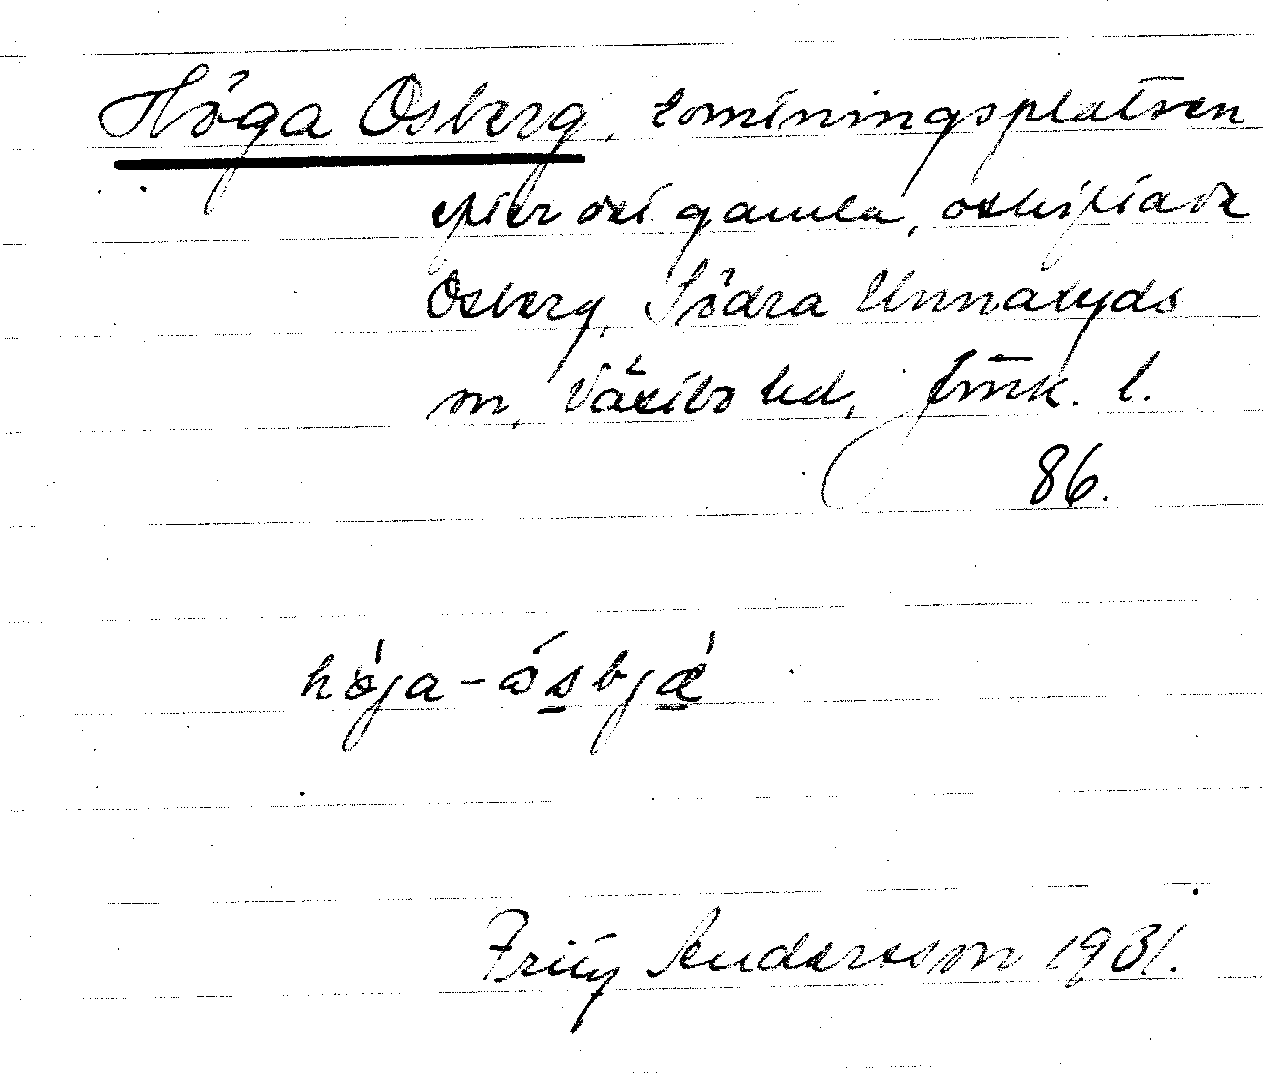 Höga Osberg, tomtningsplatsen
efter det gamla, oskiftade
Osberg, Södra Unnaryds
sn, Västbo hd, Jönk. l.
86.
höja-åsbjæ
Fritz Andersson 1931.